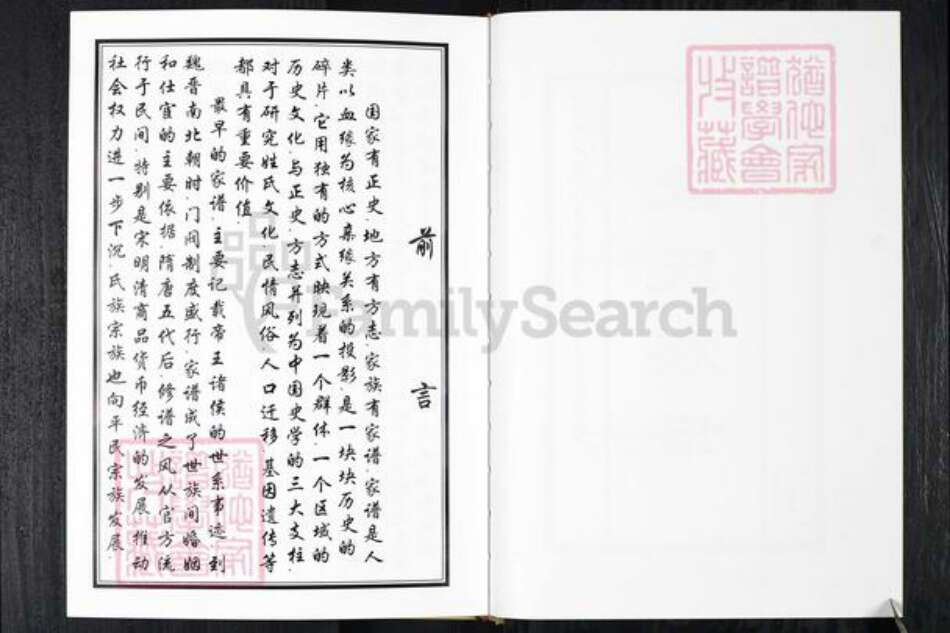 前言
国家有正史.地方有方志.家族有家谱.家谱是人
类以血缘为核心亲缘关系的投影.是一块块历史的
碎片.它用独有的方式映现着一个群体.一个区域的
历史文化.与正史.方志并列为中国史学的三大支柱.
对于研究姓氏文化.民情风俗.人口迁移.基因遗传等
都具有重要价值
最早的家谱.主要记载帝王诸侯的世系事迹.到
魏晋南北朝时.门阀制度盛行.家谱成了世族间婚姻
和仕宦的主要依据.隋唐五代后.修谱之风从官方流
行于民间.特别是宋明清商品货币经济的发展.推动
社会权力进一步下沉.氏族宗族也向平民宗族发展.
FamilySearch
猶他家
譜學會
收藏
猶他家
譜學會
收藏